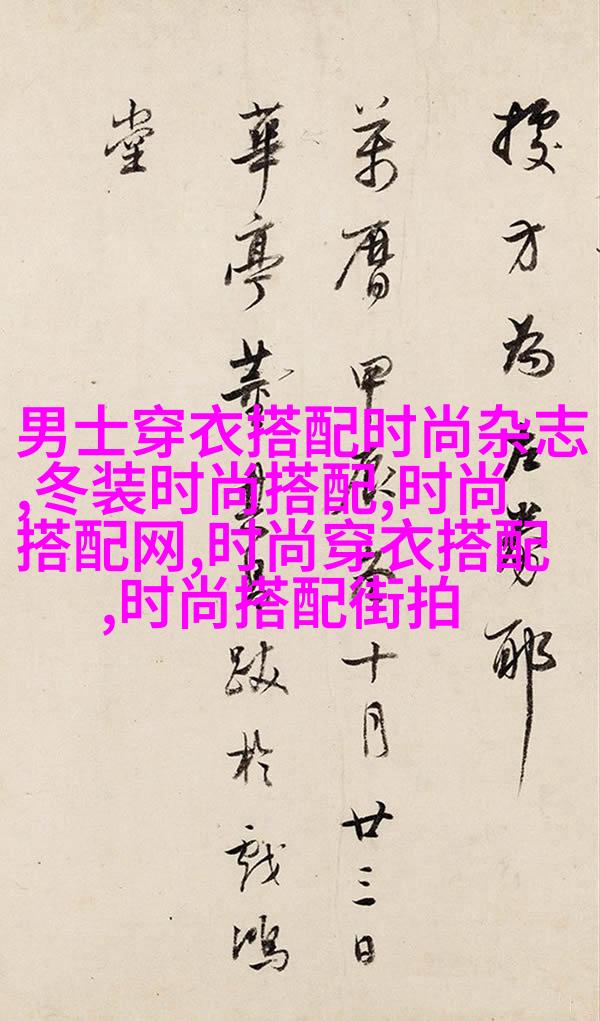 方為左券耶
萬曆甲辰十月廿三日
華亭董其昌跋於戲鴻
堂
男士穿衣搭配时尚杂志
,冬装时尚搭配,时尚
搭配网,时尚穿衣搭配
,时尚搭配街拍